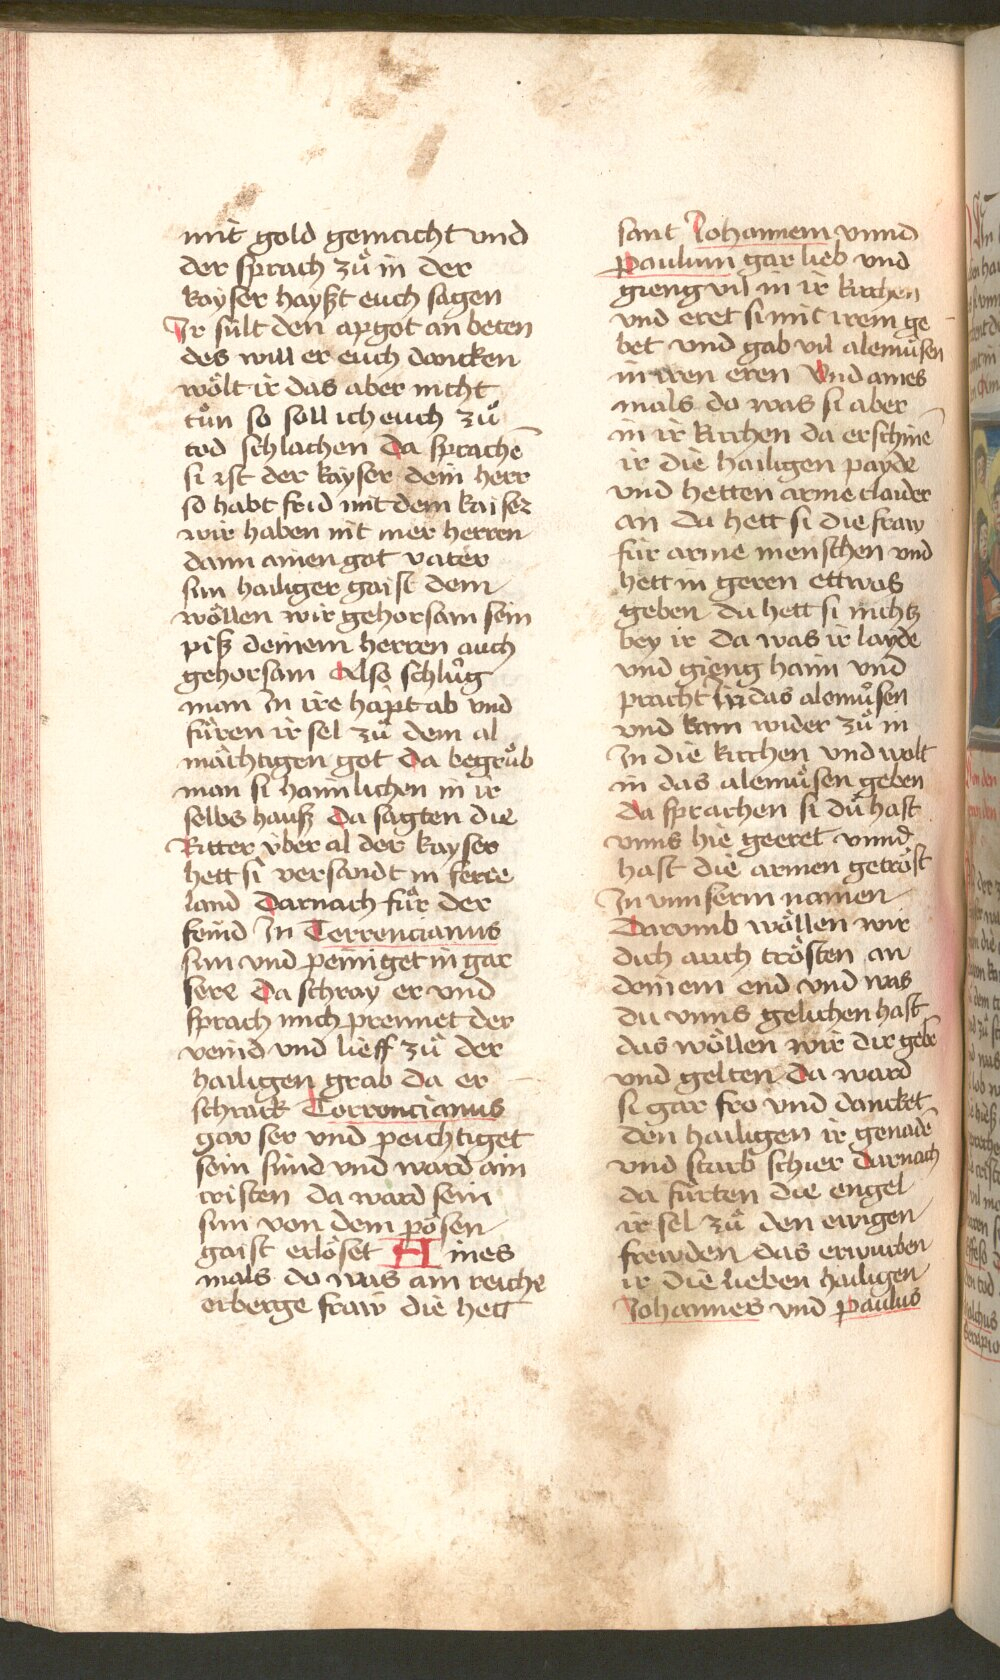 mit gold gemacht vnd
der sprach zů in der
kayser hayßt euch sagen
Ir sült den apgot an beten
des will er euch dancken
wölt ir das aber nicht
tůn so soll ich euch zů
tod schlachen Da sprachē
si ist der kayser dein herr
so habt frid mit dem kaiser
wir haben nit mer herren
dann ainen got vater
sun hailiger gaist dem
wöllen wir gehorsam sein
piß deinem herren auch
gehorsam Also schlůg
man In ire häpt ab vnd
fůren ir sel zů dem al
mächtigen got Da begrůb
man si haimlichen in ir
selbs hauß Da sagten die
Ritter v̈ber al der kayser
hett si versandt in ferre
land Darnach fůr der
feind In Terrencianus
sun vnd peiniget in gar
sere Da schray er vnd
sprach mich prennet der
veind vnd lieff zů der
hailigen grab da er
schrack Terrencianus
gar ser vnd peichtiget
sein sünd vnd ward ain
cristen da ward sein
sun von dem pösen
gaist erlöset Aines
mals do was ain reiche
erberge fraw die hett
sant Johannem vnnd
Paulum gar lieb vnd
gieng vil in ir kirchen
vnd eret si mit irem ge
bet vnd gab vil alemůsen
in iren eren Vnd aines
mals do was si aber
in ir kirchen da erschinē
ir die hailigen payde
vnd hetten arme claider
an da hett si die fraw
für arme menschen vnd
hett in geren ettwas
geben da hett si nichtz
bey ir da was ir layde
vnd gieng haim vnd
pracht Ir das alemůsen
vnd kam wider zů in
In die kirchen vnd wolt
in das alemůsen geben
Da sprachen si dů hast
vnns hie geeret vnnd
hast die armen getröst
In vnnserm namen
Darumb wöllen wir
dich auch trösten an
deinem end vnd was
du vnns gelichen hast
das wöllen wir dir gebē
vnd gelten Da ward
si gar fro vnd dancket
den hailigen ir genadē
vnd starb schier Darnach
da fürten die engel
ir sel zů den ewigen
frewden das erwurben
ir die lieben hailigen
Johannes vnd Paulus